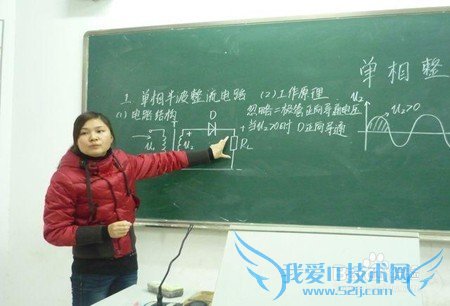 单相整
1. 单相半波整流电路
(1) 电路结构
D
u₁
u₂
RL
(2) 工作原理
忽略二极管正向导通电压
当u₂>0时 D正向导通
u₂
u₂>0
我爱IT技术网
www.52ij.com